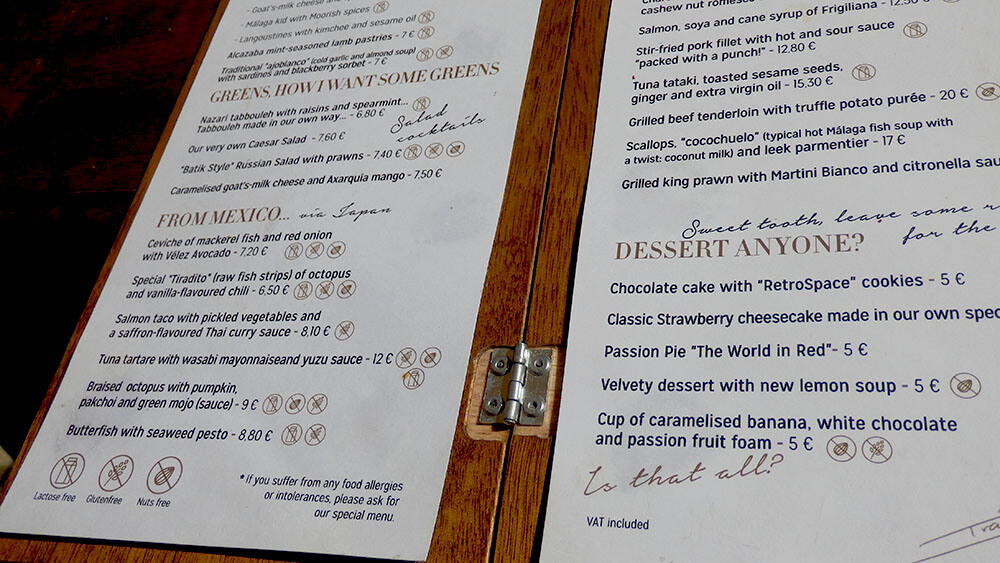 - Goat's-milk cheese and
- Málaga kid with Moorish spices
- Langoustines with kimchee and sesame oil
Alcazaba mint-seasoned lamb pastries - 7 €
Traditional "ajoblanco" (cold garlic and almond soup)
with sardines and blackberry sorbet - 7 €
GREENS, HOW I WANT SOME GREENS
Nazarí tabbouleh with raisins and spearmint...
Tabbouleh made in our own way... - 6.80 €
Salad
cocktails
Our very own Caesar Salad - 7,60 €
"Batik Style" Russian Salad with prawns - 7,40 €
Caramelised goat's-milk cheese and Axarquia mango - 7,50 €
FROM MEXICO... vía Japan
Ceviche of mackerel fish and red onion
with Vélez Avocado - 7,20 €
Special "Tiradito" (raw fish strips) of octopus
and vanilla-flavoured chili - 6,50 €
Salmon taco with pickled vegetables and
a saffron-flavoured Thai curry sauce - 8,10 €
Tuna tartare with wasabi mayonnaiseand yuzu sauce - 12 €
Braised octopus with pumpkin,
pakchoi and green mojo (sauce) - 9 €
Butterfish with seaweed pesto - 8,80 €
Lactose free Glutenfree Nuts free
* If you suffer from any food allergies
or intolerances, please ask for
our special menu.
cashew nut
Salmon, soya and cane syrup of Frigiliana - 12,50
Stir-fried pork fillet with hot and sour sauce
"packed with a punch!" - 12,80
Tuna tataki, toasted sesame seeds,
ginger and extra virgin oil - 15,30
Grilled beef tenderloin with truffle potato purée - 20 €
Scallops, "cocochuelo" (typical hot Málaga fish soup with
a twist: coconut milk) and leek parmentier - 17 €
Grilled king prawn with Martini Bianco and citronella
Sweet tooth, leave some
for the
DESSERT ANYONE?
Chocolate cake with "RetroSpace" cookies - 5 €
Classic Strawberry cheesecake made in our own
Passion Pie "The World in Red"- 5 €
Velvety dessert with new lemon soup - 5 €
Cup of caramelised banana, white chocolate
and passion fruit foam - 5 €
Is that all?
VAT included